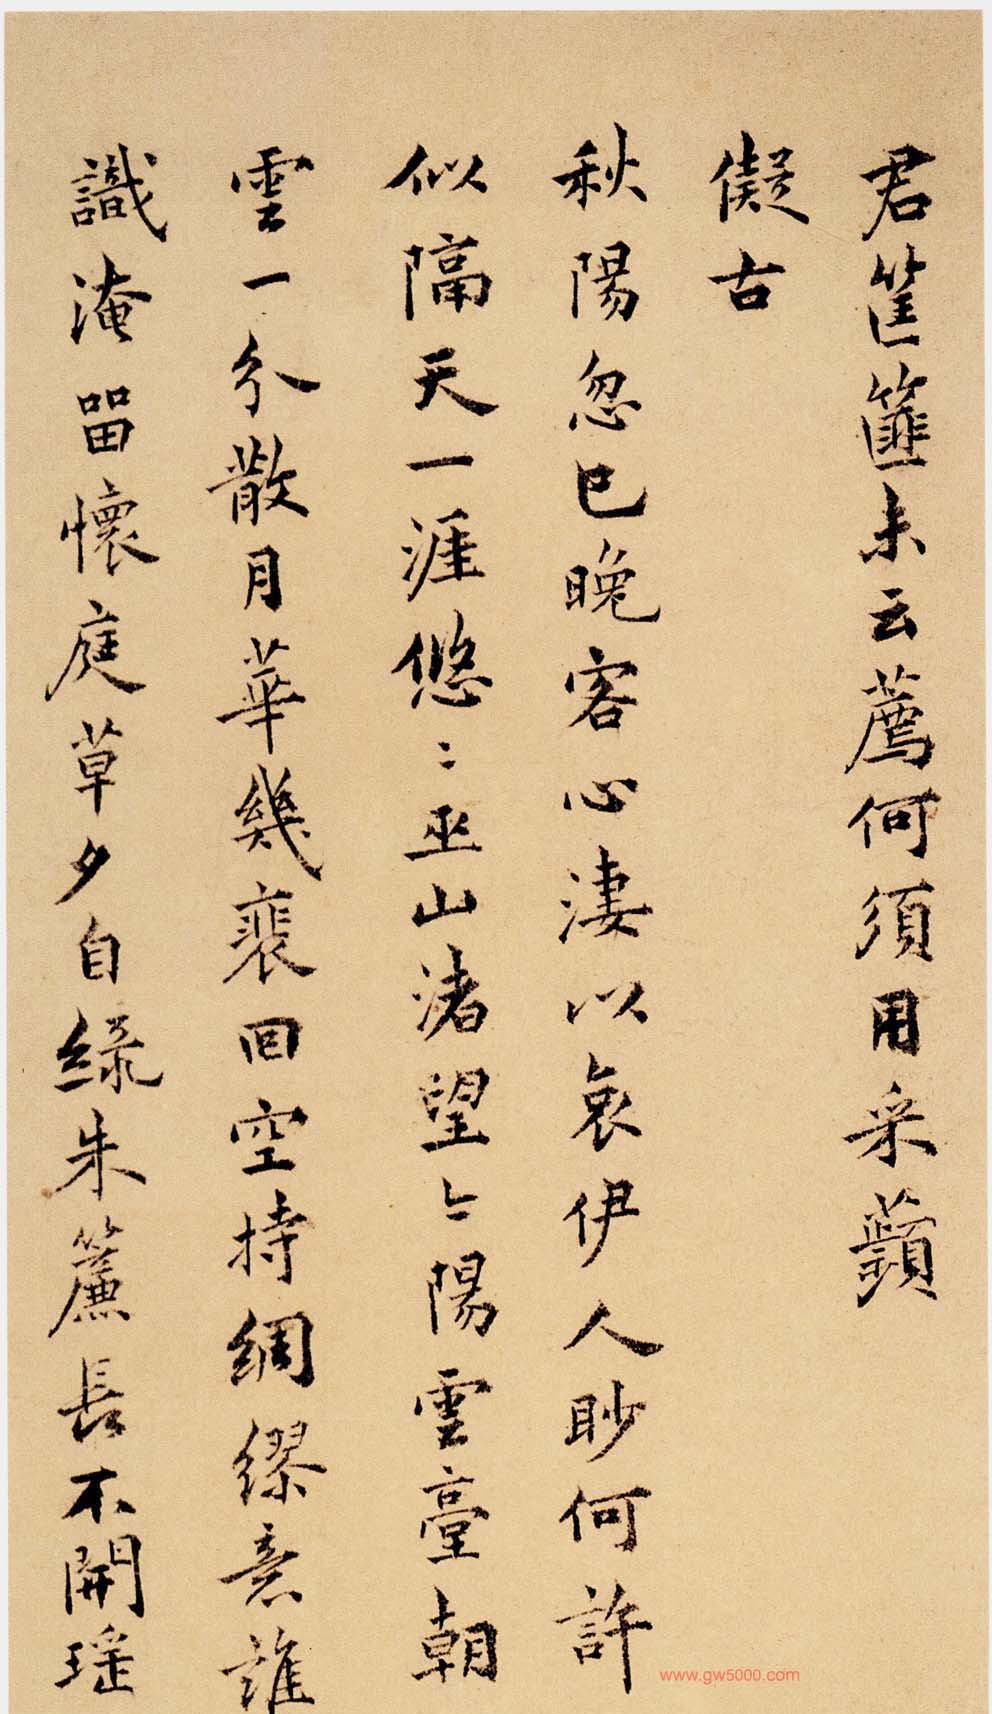 君筐篚未云薦何須用采蘋
儗古
秋陽忽已晚客心淒以哀伊人眇何許
似隔天一涯悠〻巫山渚望〻陽雲臺朝
雲一分散月華幾裴回空持綢繆意誰
識淹留懷庭草夕自綠朱簾長不開瑤
www.gw5000.com